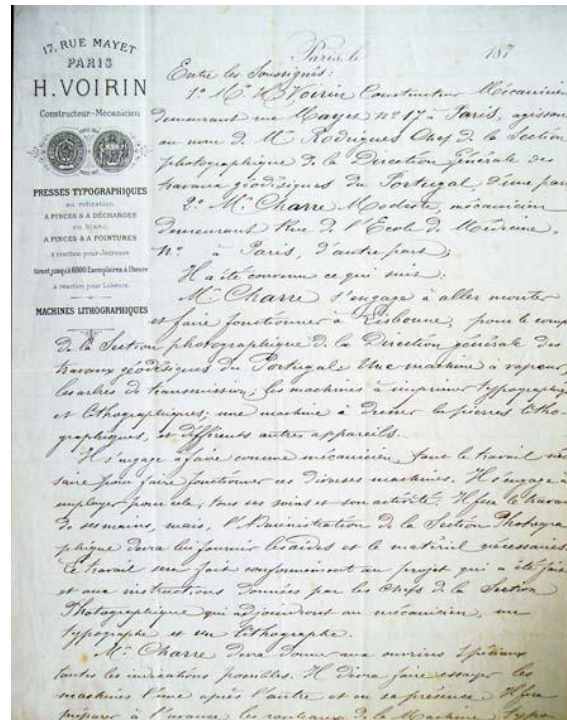 17, RUE MAYET
PARIS
H. VOIRIN
Constructeur-Mécanicien
PRESSES TYPOGRAPHIQUES
en retiration
A PINCES & A DÉCHARGES
en blanc
A PINCES & A POINTURES
à réaction pour Journaux
tirant jusqu'à 6000 Exemplaires à l'heure
à réaction pour Labeurs
MACHINES LITHOGRAPHIQUES
Paris, le 187
Entre les Soussignés:
1º Mr. H. Voirin Constructeur Mécanicien
demeurant rue Mayet nº 17 à Paris, agissant
au nom de Mr Rodrigues Chef de la Section
photographique de la Direction générale des
travaux géodésiques du Portugal, d'une part
2º Mr. Charre Modeste, mécanicien
demeurant Rue de l'Ecole de Médecine,
nº à Paris, d'autre part;
Il a été convenu ce qui suit:
Mr Charre s'engage à aller monter
et faire fonctionner à Lisbonne, pour le compte
de la Section photographique de la Direction générale des
travaux géodésiques du Portugal Une machine à vapeur,
les arbres de transmission; les machines à imprimer typographiques
et lithographiques; une machine à dresser les pierres litho-
graphiques, et différents autres appareils.
Il s'engage à faire comme mécanicien, tout le travail néces
saire pour faire fonctionner ces diverses machines. Il s'engage à
employer pour cela, tous ses soins et son activité. Il fera le travail
de ses mains, mais, l'Administration de la Section Photogra
phique devra lui fournir les aides et le matériel nécessaires.
Ce travail sera fait conformément au projet qui a été fait
et aux instructions données par les Chefs de la Section
Photographique qui adjoindront au mécanicien, un
typographe et un lithographe.
Mr. Charre devra donner aux ouvriers spéciaux
toutes les indications possibles. Il devra faire essayer les
machines l'une après l'autre et en sa présence. Il fera
préparer à l'avance les rouleaux de la Machine